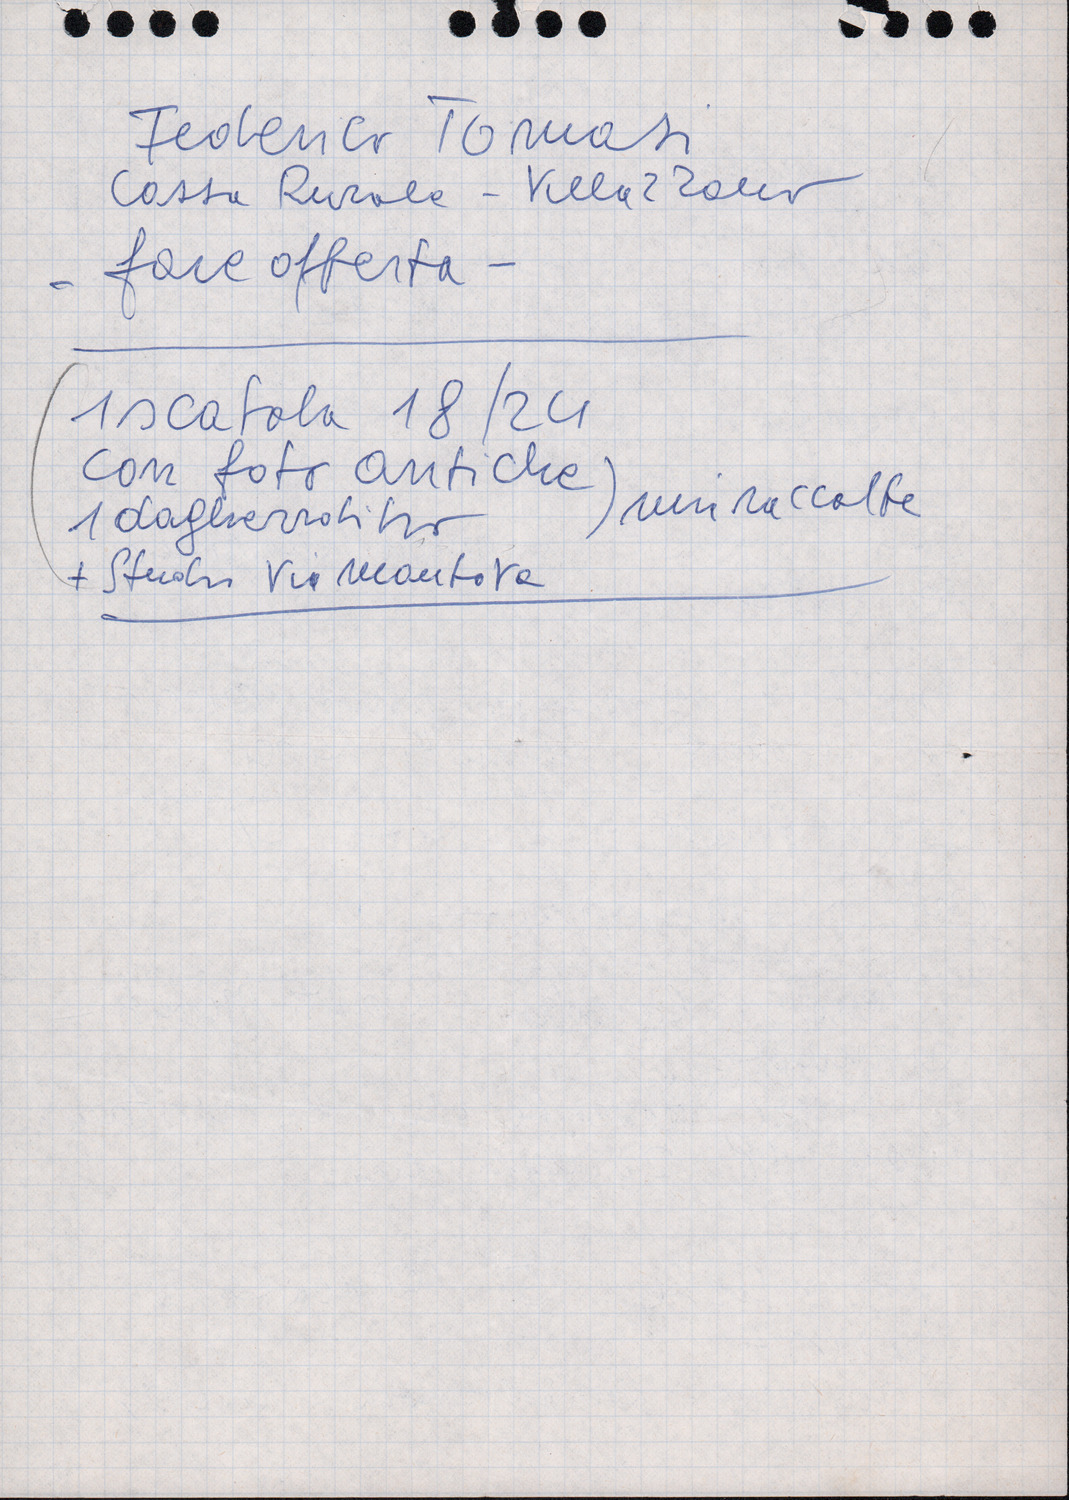 Federico Tomasi
Cassa Rurale - Villazzano
- fare offerta -
1 scatola 18/24
con foto antiche
1 dagherrotipo
) miniraccolte
+ Studio Via Mantova